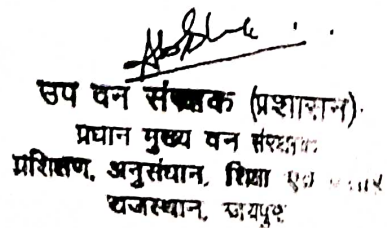 उप वन संरक्षक (प्रशासन)
प्रधान मुख्य वन संरक्षक
प्रशिक्षण, अनुसंधान, शिक्षा एवं
राजस्थान, जयपुर